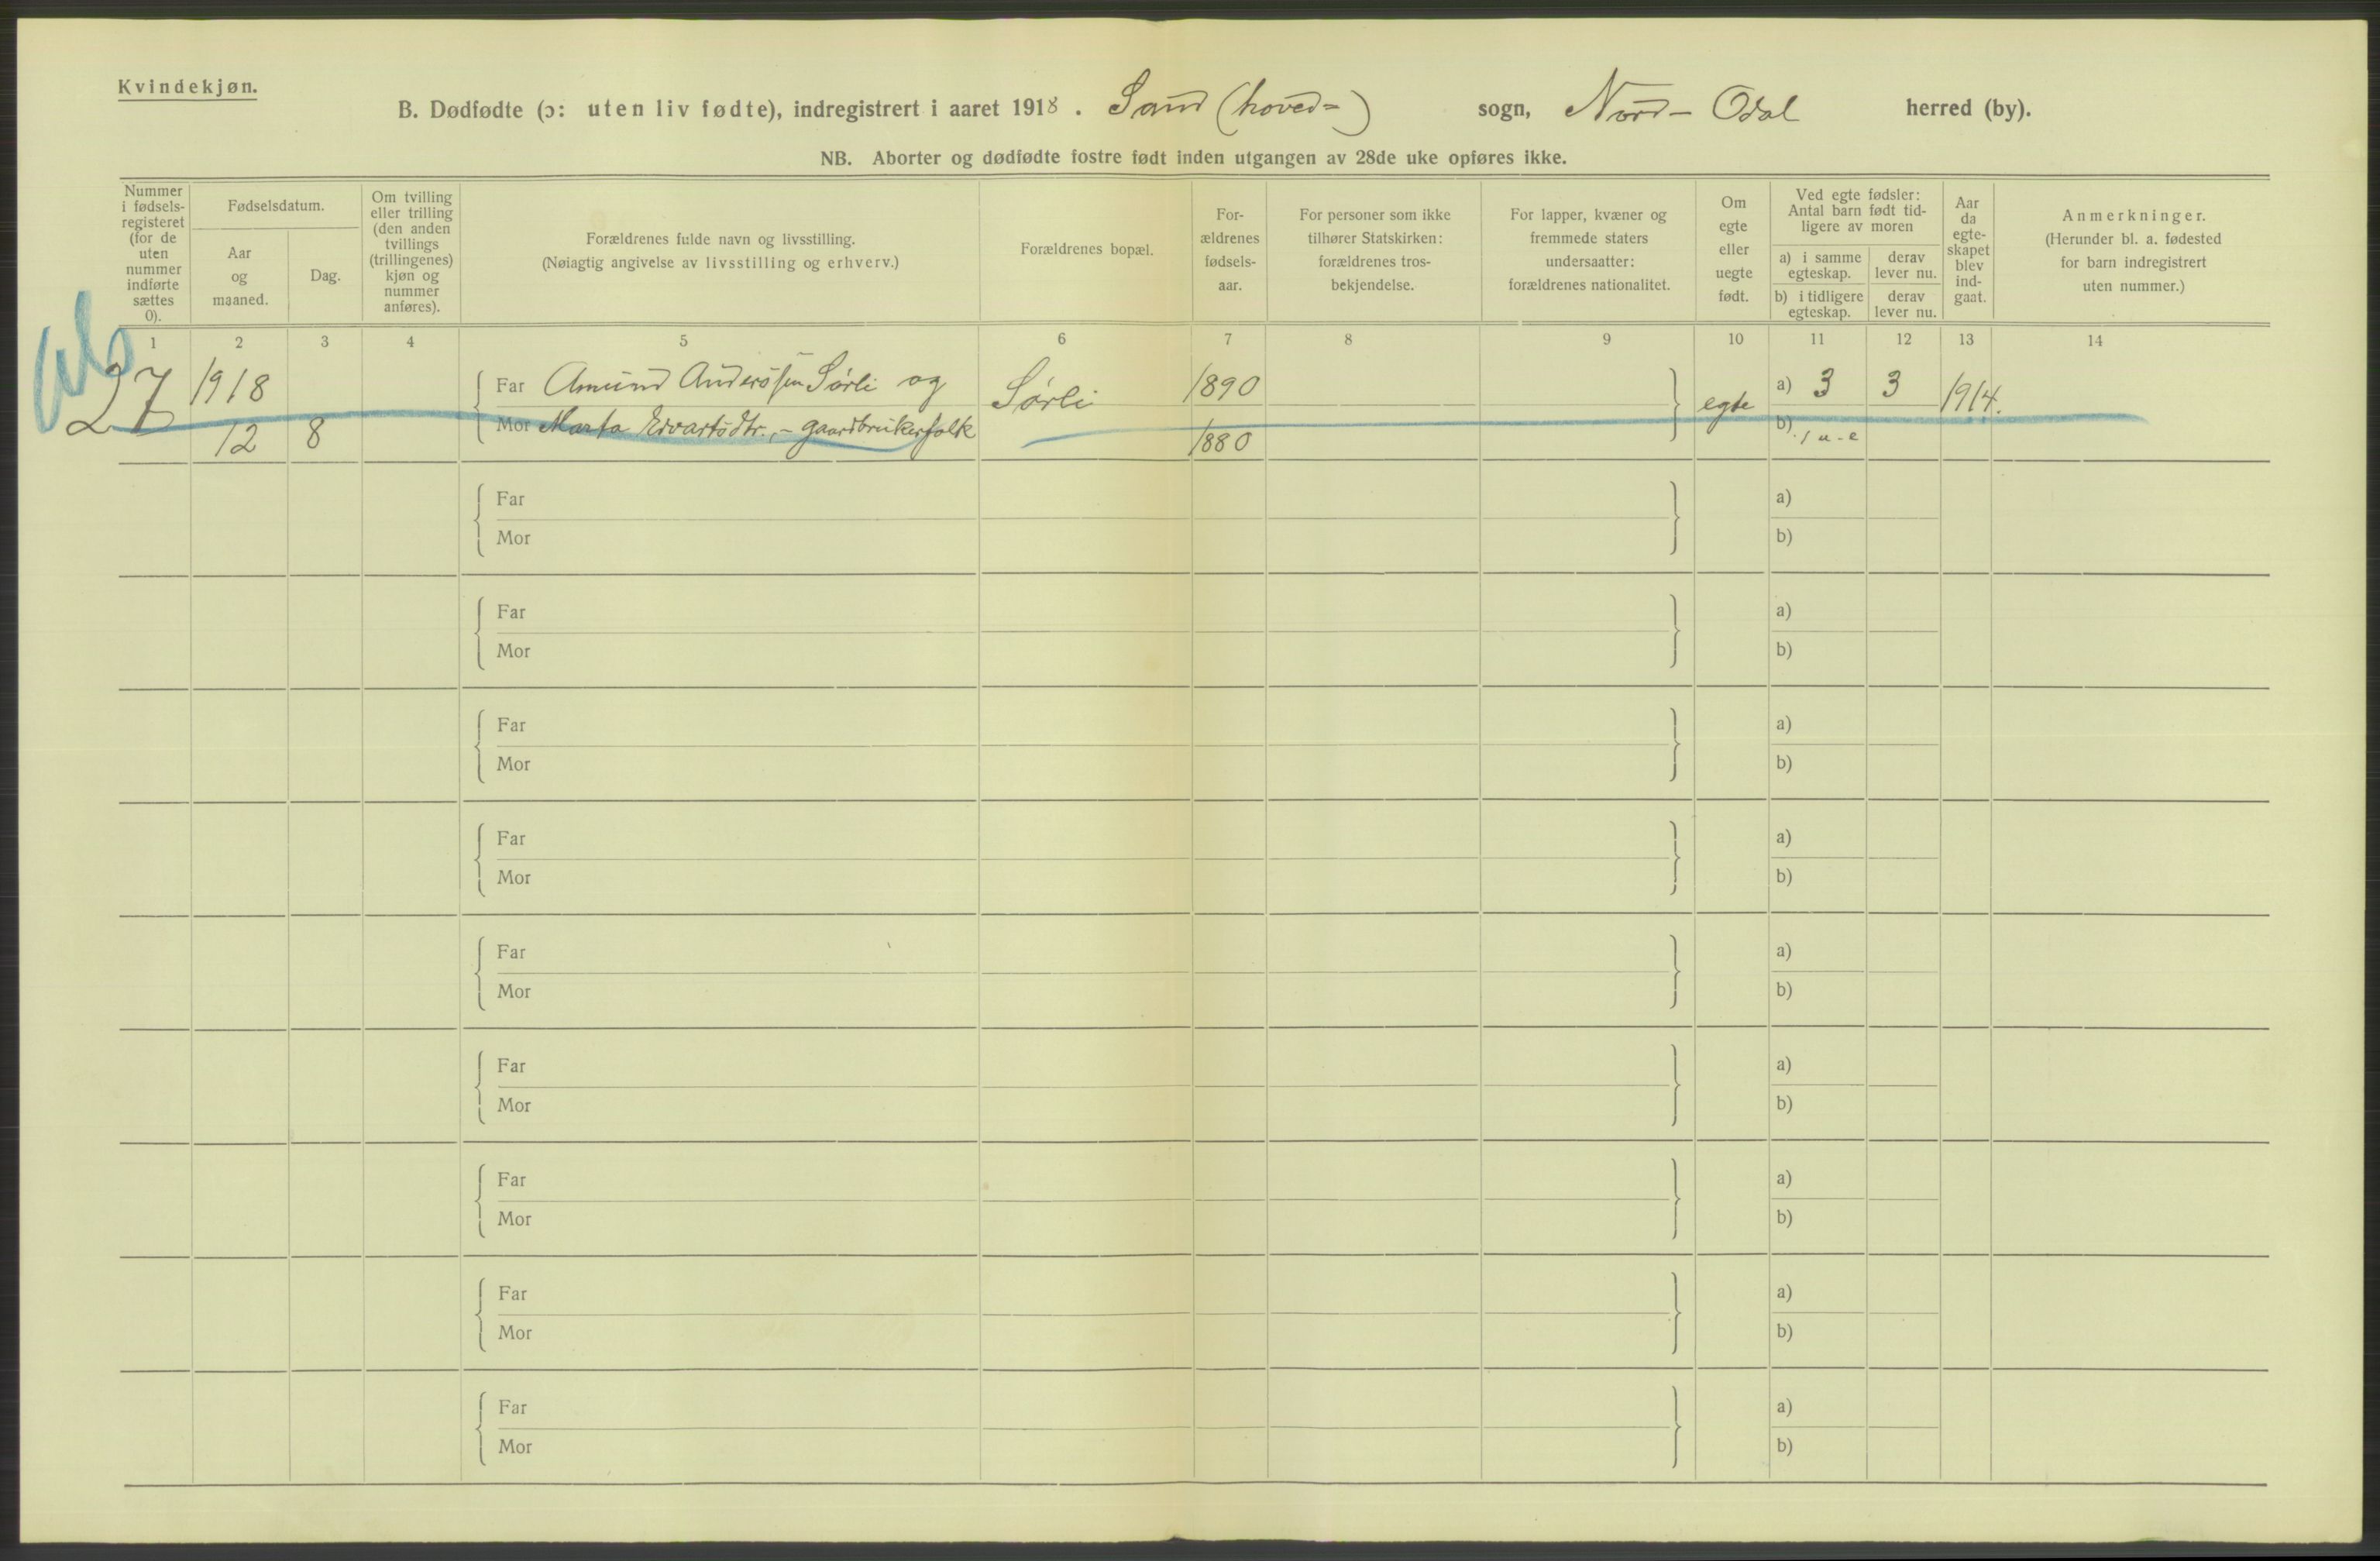 Kvindekjøn.
B. Dødfødte (ɔ: uten liv fødte), indregistrert i aaret 1918. Sand (hoved=) sogn, Nord-Odal herred (by).
NB. Aborter og dødfødte fostre født inden utgangen av 28de uke opføres ikke.
Nummer i fødsels-registeret (for de uten nummer indførte sættes 0).
Fødselsdatum.
Aar og maaned.
Dag.
Om tvilling eller trilling (den anden tvillings (trillingenes) kjøn og nummer anføres).
Forældrenes fulde navn og livsstilling.
(Nøiagtig angivelse av livsstilling og erhverv.)
Forældrenes bopæl.
For-ældrenes fødsels-aar.
For personer som ikke tilhører Statskirken: forældrenes tros-bekjendelse.
For lapper, kvæner og fremmede staters undersaatter: forældrenes nationalitet.
Om egte eller uegte født.
Ved egte fødsler: Antal barn født tid-ligere av moren
a) i samme egteskap.
derav lever nu.
b) i tidligere egteskap.
derav lever nu.
Aar da egte-skapet blev ind-gaat.
Anmerkninger.
(Herunder bl. a. fødested for barn indregistrert uten nummer.)
1 2 3 4 5 6 7 8 9 10 11 12 13 14
27 1918 Far Amund Anderssen Sørli og Sørli 1890 egte a) 3 3 1914.
12 8 Mor Marta Edvartsdtr., - gaardbrukerfolk 1880 b) 1 u-e
Far a)
Mor b)
Far a)
Mor b)
Far a)
Mor b)
Far a)
Mor b)
Far a)
Mor b)
Far a)
Mor b)
Far a)
Mor b)
Far a)
Mor b)
Far a)
Mor b)